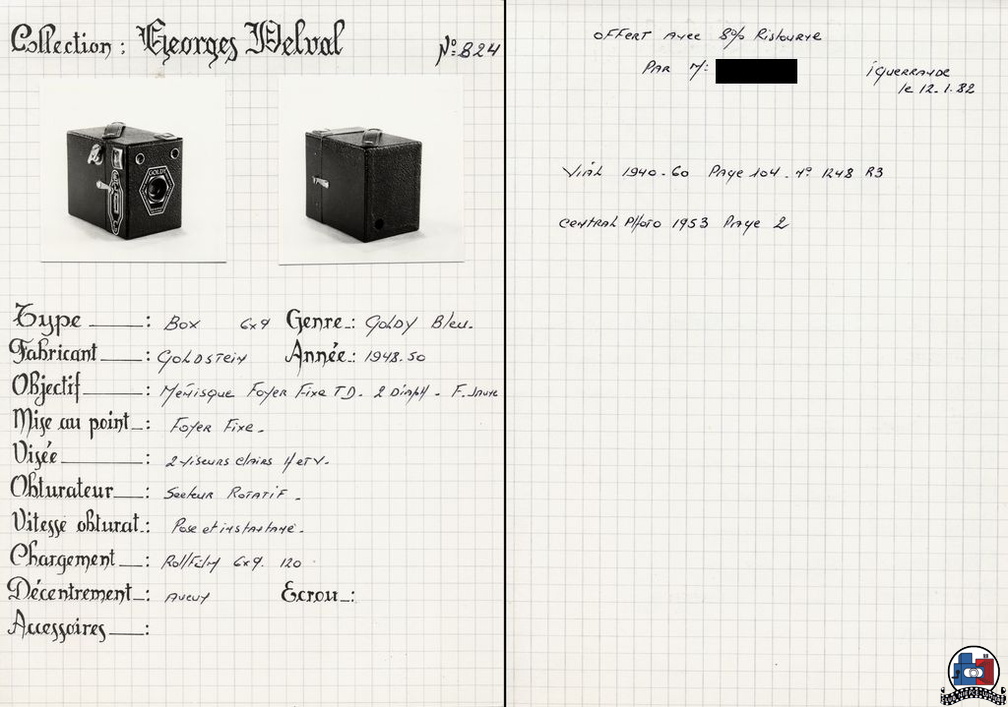 Collection : Georges Delval N°: 824
GOLDY
Type : Box 6x9 Genre : Goldy Bleu.
Fabricant : Goldstein Année : 1948.50
Objectif : Ménisque Foyer Fixe TD. 2 Diaph - F. Jaune
Mise au point : Foyer Fixe.
Visée : 2 viseurs clairs H et V.
Obturateur : Secteur Rotatif.
Vitesse obturat. : Pose et instantané.
Chargement : Rollfilm 6x9. 120
Décentrement : Aucun Ecrou :
Accessoires :
Offert avec 8% Ristourne
Par M:
iguerrande
le 12.1.82
Vial 1940-60 Page 104. n° 1248 R3
Central Photo 1953 Page 2